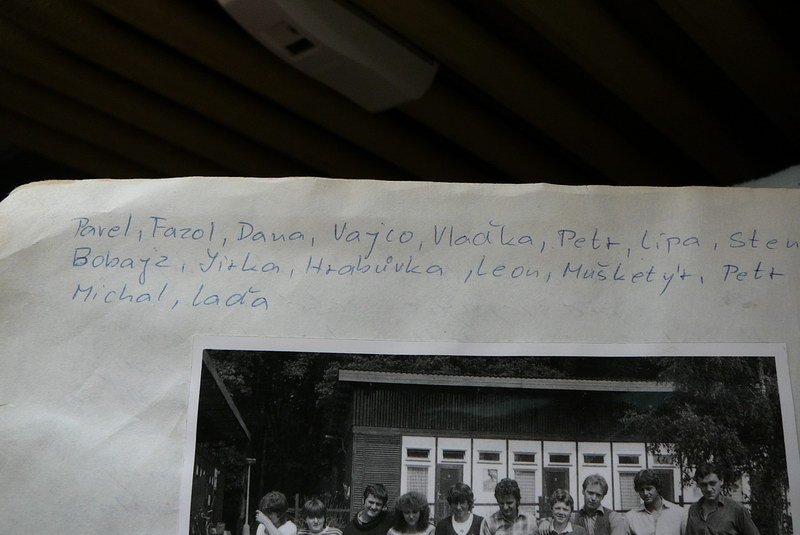 Pavel, Fazol, Dana, Vajco, Vlaďka, Petr, Lípa, Sten
Bobajz, Jirka, Hrabůvka, Leon, Mušketýr, Petr
Michal, Laďa